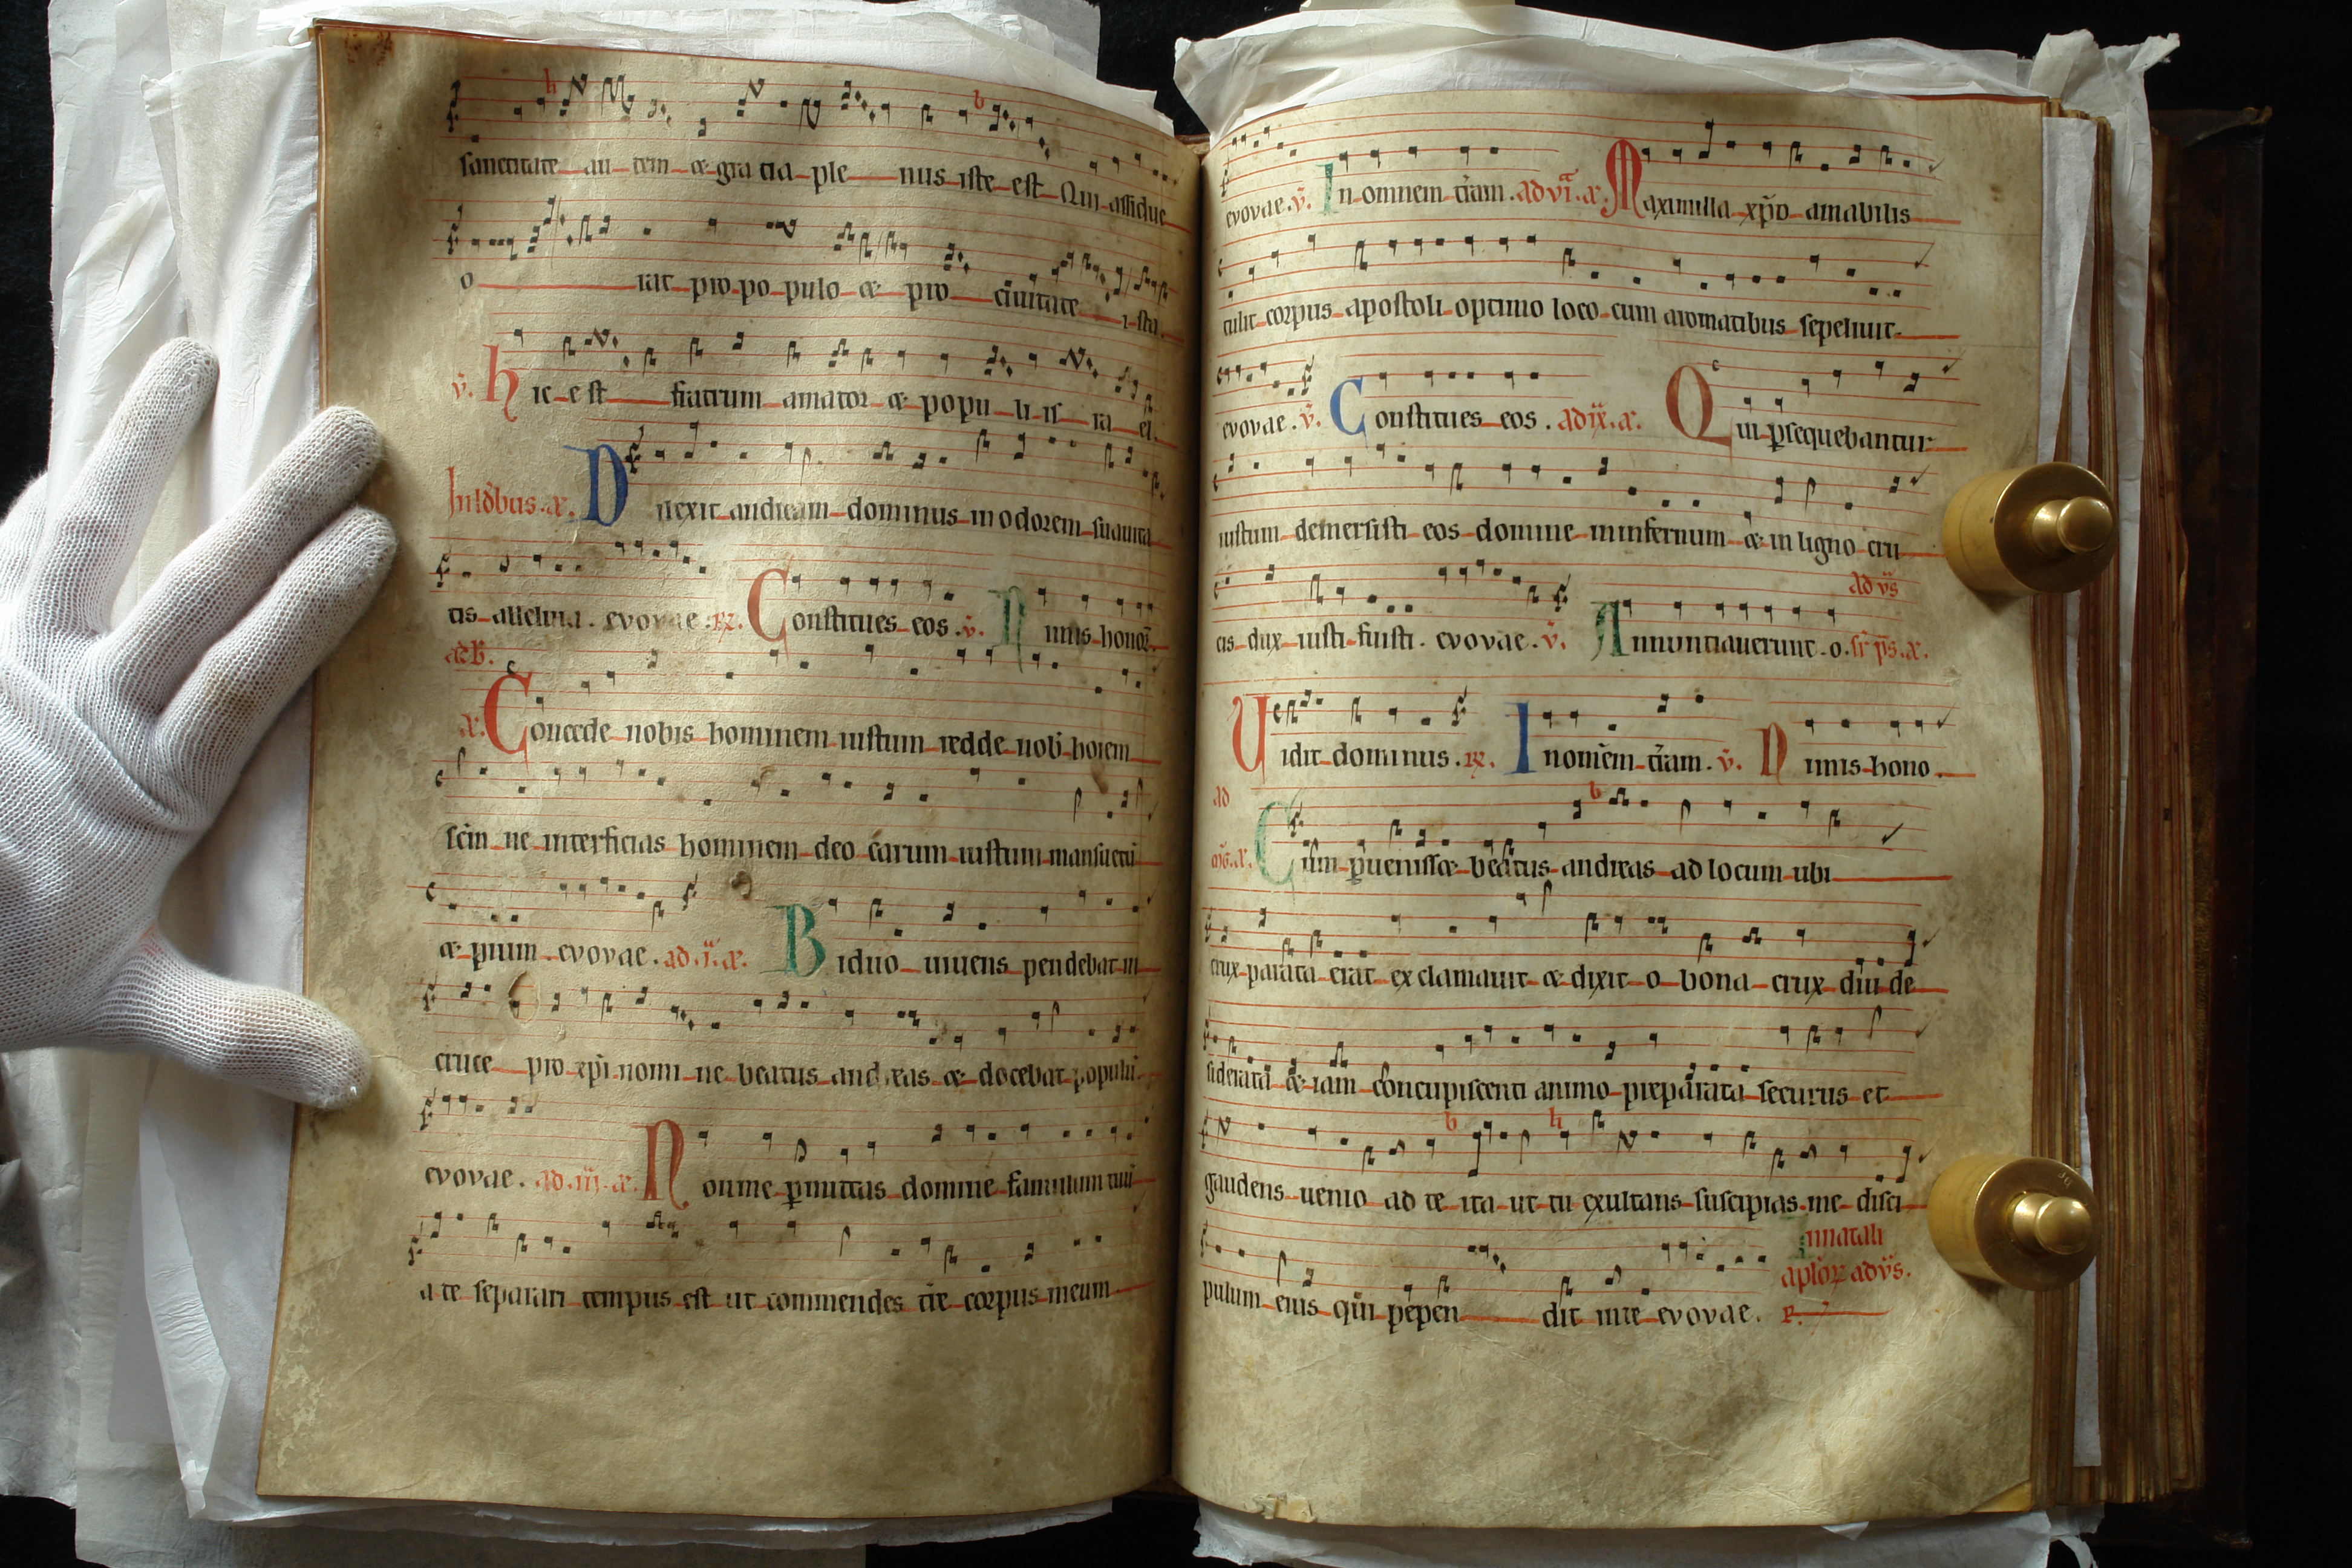 sanctitate au tem & gra tia ple nus iste est Qui assidue
o rat pro po pulo & pro civitate i sta.
v̄. hic est fratrum amator & popu li is ra el.
In ld̄ibus. a. Direxit andream dominus in odorem suavita
tis alleluia. evovae. R. Constitues eos. v̄. Nimis honor̄.
ad B.
a. Concede nobis hominem iustum redde nob̄ hoiem
sc̄m ne interficias hominem deo carum iustum mansuetū
& pium. evovae. ad .i. a. Biduo vivens pendebat in
cruce pro xp̄i nomi ne beatus andreas & docebat populū.
evovae. ad .iii. a. Non me p̄mittas domine famulum tuū
a te separari tempus est ut commendes t̄re corpus meum
evovae. v̄. In omnem t̄ram. ad vi. a. Maximilla xp̄o amabilis
tulit corpus apostoli optimo loco cum aromatibus sepelivit.
evovae. v̄. Constitues eos. ad ix. a. Qui p̄sequebantur
iustum demersisti eos domine in infernum & in ligno cru
ad vs̄
cis dux iusti fuisti. evovae. v̄. Annuntiaverunt. o. sr̄ ps̄. a.
Vidit dominus. R. In omn̄em t̄ram. v̄. Nimis hono.
ad
mḡ. a. Cum p̄venisset beatus andreas ad locum ubi
crux parata erat exclamavit & dixit o bona crux diu de
siderata & iam concupiscenti animo preparata securus et
gaudens venio ad te ita ut tu exultans suscipias me disci
In natali
aplor̄ ad vs̄.
pulum eius qui pepen dit in te evovae. R.